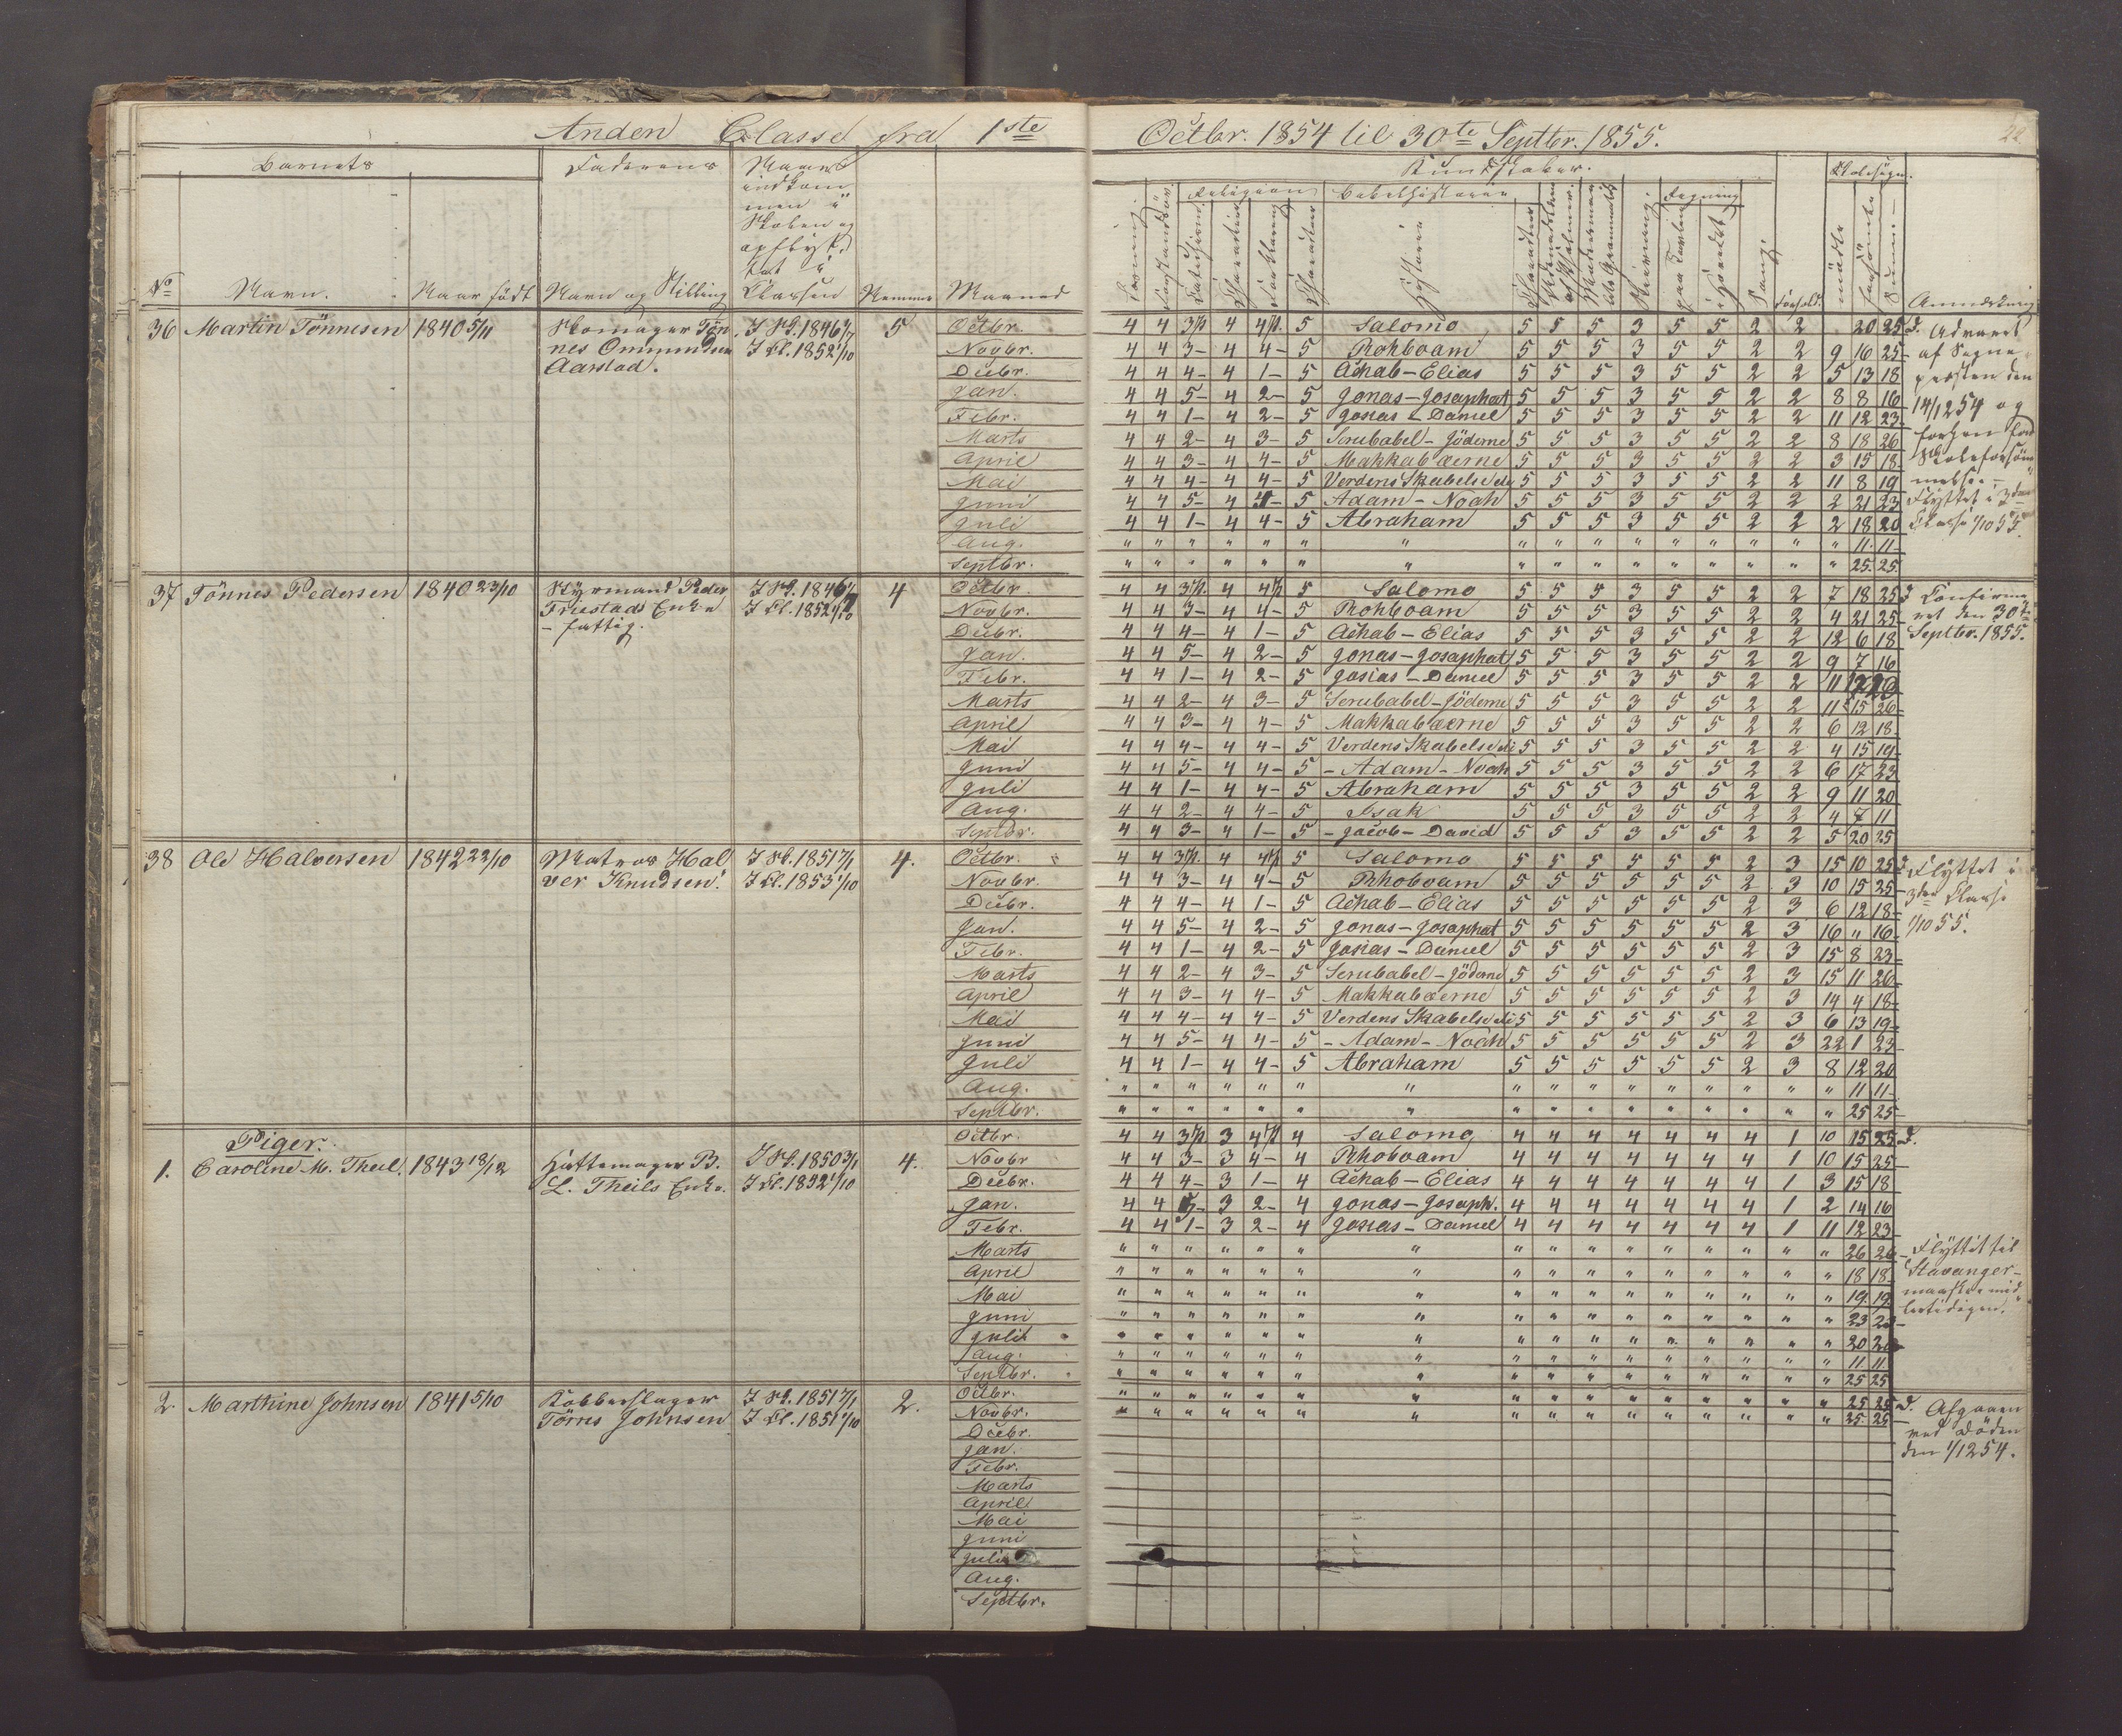 Anden Classe fra 1ste Octbr. 1854 til 30te Septbr. 1855.
22
Barnets Faderens Naar indkommen i Skolen og opflyttet i Classen
Kundskaber. Skolesøgn.
Religion Bibelhistorie Regning
No Navn. Naar født Navn og Stilling Nemme Maaned
Historie Sang Forhold mødte forsömte Sum Anmærkning
36 Martin Tönnesen 1840 5/11 Skomager Tön
nes Ommundsen
Aarstad.
I Sk. 1846 1/7
I Cl. 1852 1/10
5
Octbr. 4 4 3 p. 4 4 p. 5 Salomo 5 5 5 3 5 5 2 2 20 25
Novbr. 4 4 3- 4 4- 5 Rohboam 5 5 5 3 5 5 2 2 9 16 25
Decbr. 4 4 4- 4 1- 5 Achab-Elias 5 5 5 3 5 5 2 2 5 13 18
Jan. 4 4 5- 4 2- 5 Jonas-Josaphat 5 5 5 3 5 5 2 2 8 8 16
Febr. 4 4 1- 4 2- 5 Josias-Daniel 5 5 5 3 5 5 2 2 11 12 23
Marts 4 4 2- 4 3- 5 Serubabel-Jöderne 5 5 5 3 5 5 2 2 8 18 26
April 4 4 3- 4 4- 5 Makkabæerne 5 5 5 3 5 5 2 2 3 15 18
Mai 4 4 4- 4 4- 5 Verdens Skabelse 5 5 5 3 5 5 2 2 11 8 19
Juni 4 4 5- 4 4- 5 Adam-Noah 5 5 5 3 5 5 2 2 2 21 23
Juli 4 4 1- 4 4- 5 Abraham 5 5 5 3 5 5 2 2 2 18 20
Aug. " " " " " " " " " " " " " " " " 11 11
Septbr. " " " " " " " " " " " " " " " " 25 25
Advaret
af Sogne
presten den
14/12 54 og
Skoleforsöm
melse.
Flyttet i 3die
Classe 1/10 55.
37 Tönnes Pedersen 1840 23/10 Styrmand Peder
Friestads Enke
- fattig.
I Sk. 1846 1/7
I Cl. 1852 1/10
4
Octbr. 4 4 3 p. 4 4 p. 5 Salomo 5 5 5 3 5 5 2 2 7 18 25
Novbr. 4 4 3- 4 4- 5 Rohboam 5 5 5 3 5 5 2 2 4 21 25
Decbr. 4 4 4- 4 1- 5 Achab-Elias 5 5 5 3 5 5 2 2 12 6 18
Jan. 4 4 5- 4 2- 5 Jonas-Josaphat 5 5 5 3 5 5 2 2 9 7 16
Febr. 4 4 1- 4 2- 5 Josias-Daniel 5 5 5 3 5 5 2 2 11 12 23
Marts 4 4 2- 4 3- 5 Serubabel-Jöderne 5 5 5 3 5 5 2 2 11 15 26
April 4 4 3- 4 4- 5 Makkabæerne 5 5 5 3 5 5 2 2 6 12 18
Mai 4 4 4- 4 4- 5 Verdens Skabelse 5 5 5 3 5 5 2 2 4 15 19
Juni 4 4 5- 4 4- 5 -Adam-Noah 5 5 5 3 5 5 2 2 6 17 23
Juli 4 4 1- 4 4- 5 Abraham 5 5 5 3 5 5 2 2 9 11 20
Aug. 4 4 2- 4 4- 5 Isak 5 5 5 3 5 5 2 2 4 7 11
Septbr. 4 4 3- 4 1- 5 -Jacob-David 5 5 5 3 5 5 2 2 5 20 25
Confirme
ret den 30te
Septbr. 1855.
38 Ole Halversen 1842 22/10 Matros Hal
ver Knudsen.
I Sk. 1851 7/1
I Cl. 1853 1/10
4.
Octbr. 4 4 3 p. 4 4 p. 5 Salomo 5 5 5 5 5 5 2 3 15 10 25
Novbr. 4 4 3- 4 4- 5 Rhoboam 5 5 5 5 5 5 2 3 10 15 25
Decbr. 4 4 4- 4 1- 5 Achab-Elias 5 5 5 5 5 5 2 3 6 12 18
Jan. 4 4 5- 4 2- 5 Jonas-Josaphat 5 5 5 5 5 5 2 3 16 " 16
Febr. 4 4 1- 4 2- 5 Josias-Daniel 5 5 5 5 5 5 2 3 15 8 23
Marts 4 4 2- 4 3- 5 Serubabel-Jöderne 5 5 5 5 5 5 2 3 15 11 26
April 4 4 3- 4 4- 5 Makkabæerne 5 5 5 5 5 5 2 3 14 4 18
Mai 4 4 4- 4 4- 5 Verdens Skabelse 5 5 5 5 5 5 2 3 6 13 19
Juni 4 4 5- 4 4- 5 -Adam-Noah 5 5 5 5 5 5 2 3 22 1 23
Juli 4 4 1- 4 4- 5 Abraham 5 5 5 5 5 5 2 3 8 12 20
Aug. " " " " " " " " " " " " " " " " 11 11
Septbr. " " " " " " " " " " " " " " " " 25 25
Flyttet i
3die Classe
1/10 55.
Piger.
1. Caroline M. Theil. 1843 18/12 Hattemager B.
L. Theils Enke.
I Sk. 1850 3/1
I Cl. 1852 1/10
4.
Octbr. 4 4 3 p. 3 4 p. 4 Salomo 4 4 4 4 4 4 4 1 10 15 25
Novbr 4 4 3- 3 4- 4 Rhoboam 4 4 4 4 4 4 4 1 10 15 25
Decbr. 4 4 4- 3 1- 4 Achab-Elias 4 4 4 4 4 4 4 1 3 15 18
Jan. 4 4 5- 3 2- 4 Jonas-Josaph. 4 4 4 4 4 4 4 1 2 14 16
Febr. 4 4 1- 3 2- 4 Josias-Daniel 4 4 4 4 4 4 4 1 11 12 23
Marts " " " " " " " " " " " " " " " " 26 26
April " " " " " " " " " " " " " " " " 18 18
Mai " " " " " " " " " " " " " " " " 19 19
Juni " " " " " " " " " " " " " " " " 23 23
Juli " " " " " " " " " " " " " " " " 20 20
Aug. " " " " " " " " " " " " " " " " 11 11
Septbr. " " " " " " " " " " " " " " " " 25 25
Flyttet til
Stavanger
2. Marthine Johnsen 1841 5/10 Kobberslager
Törres Johnsen
I Sk. 1851 7/1
I Cl. 1851 1/10
2.
Octbr. " " " " " " " " " " " " " " " " 25 25
Novbr. " " " " " " " " " " " " " " " " 25 25
Decbr.
Jan.
Febr.
Marts
April
Mai
Juni
Juli
Aug.
Septbr.
Afgaaen
ved Döden
den 1/12 54.